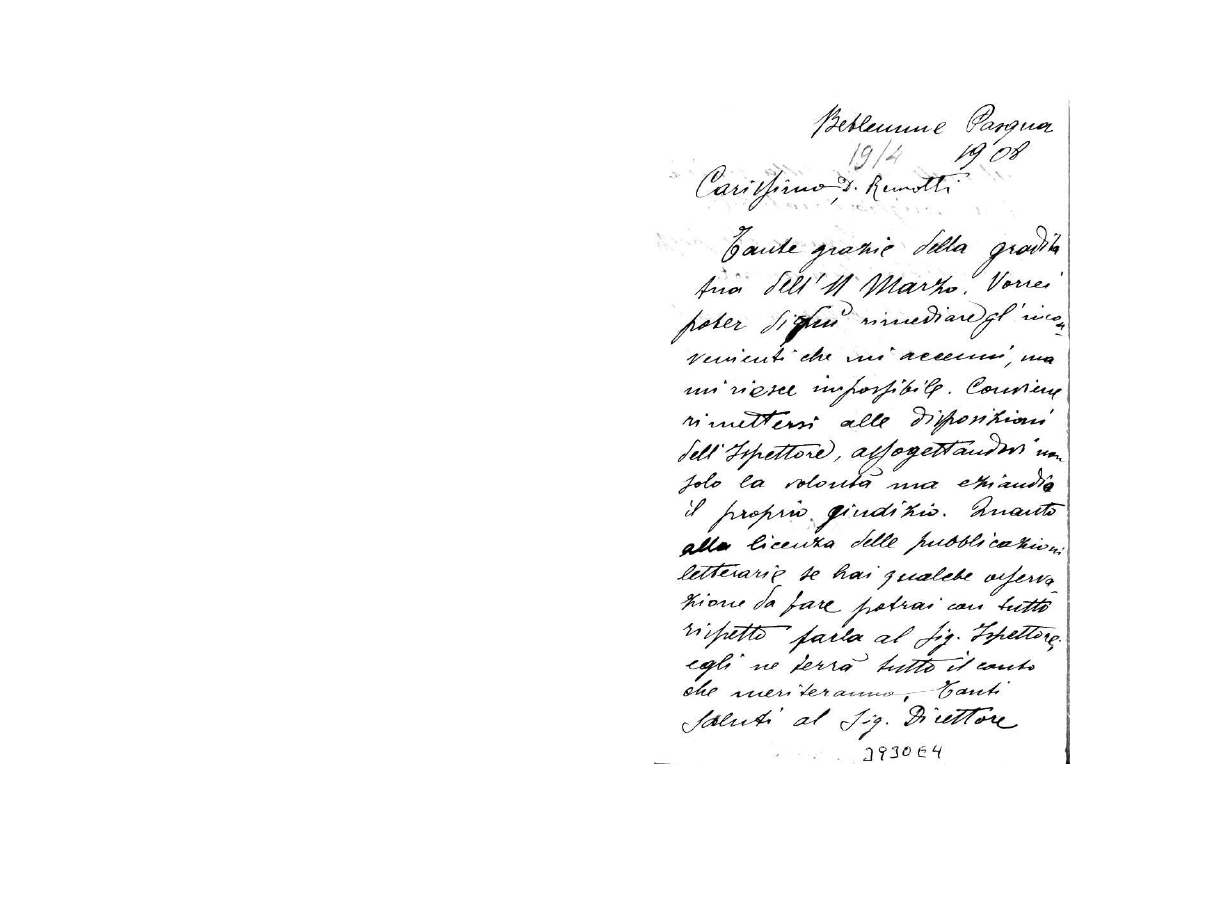 Betlemme Pasqua
19/4 1908
Carissimo D. Remotti
Tante grazie della gradita
tua dell'11 Marzo. Vorrei
poter di qui rimediare gl'incon-
venienti che mi accenni, ma
mi riesce impossibile. Conviene
rimettersi alle disposizioni
dell'Ispettore, assogettandovi non
solo la volontà ma eziandio
il proprio giudizio. Quanto
alla licenza delle pubblicazioni
letterarie se hai qualche osserva-
zione da fare potrai con tutto
rispetto farla al Sig. Ispettore;
egli ne terrà tutto il conto
che meriteranno, Tanti
saluti al Sig. Direttore
3930E4